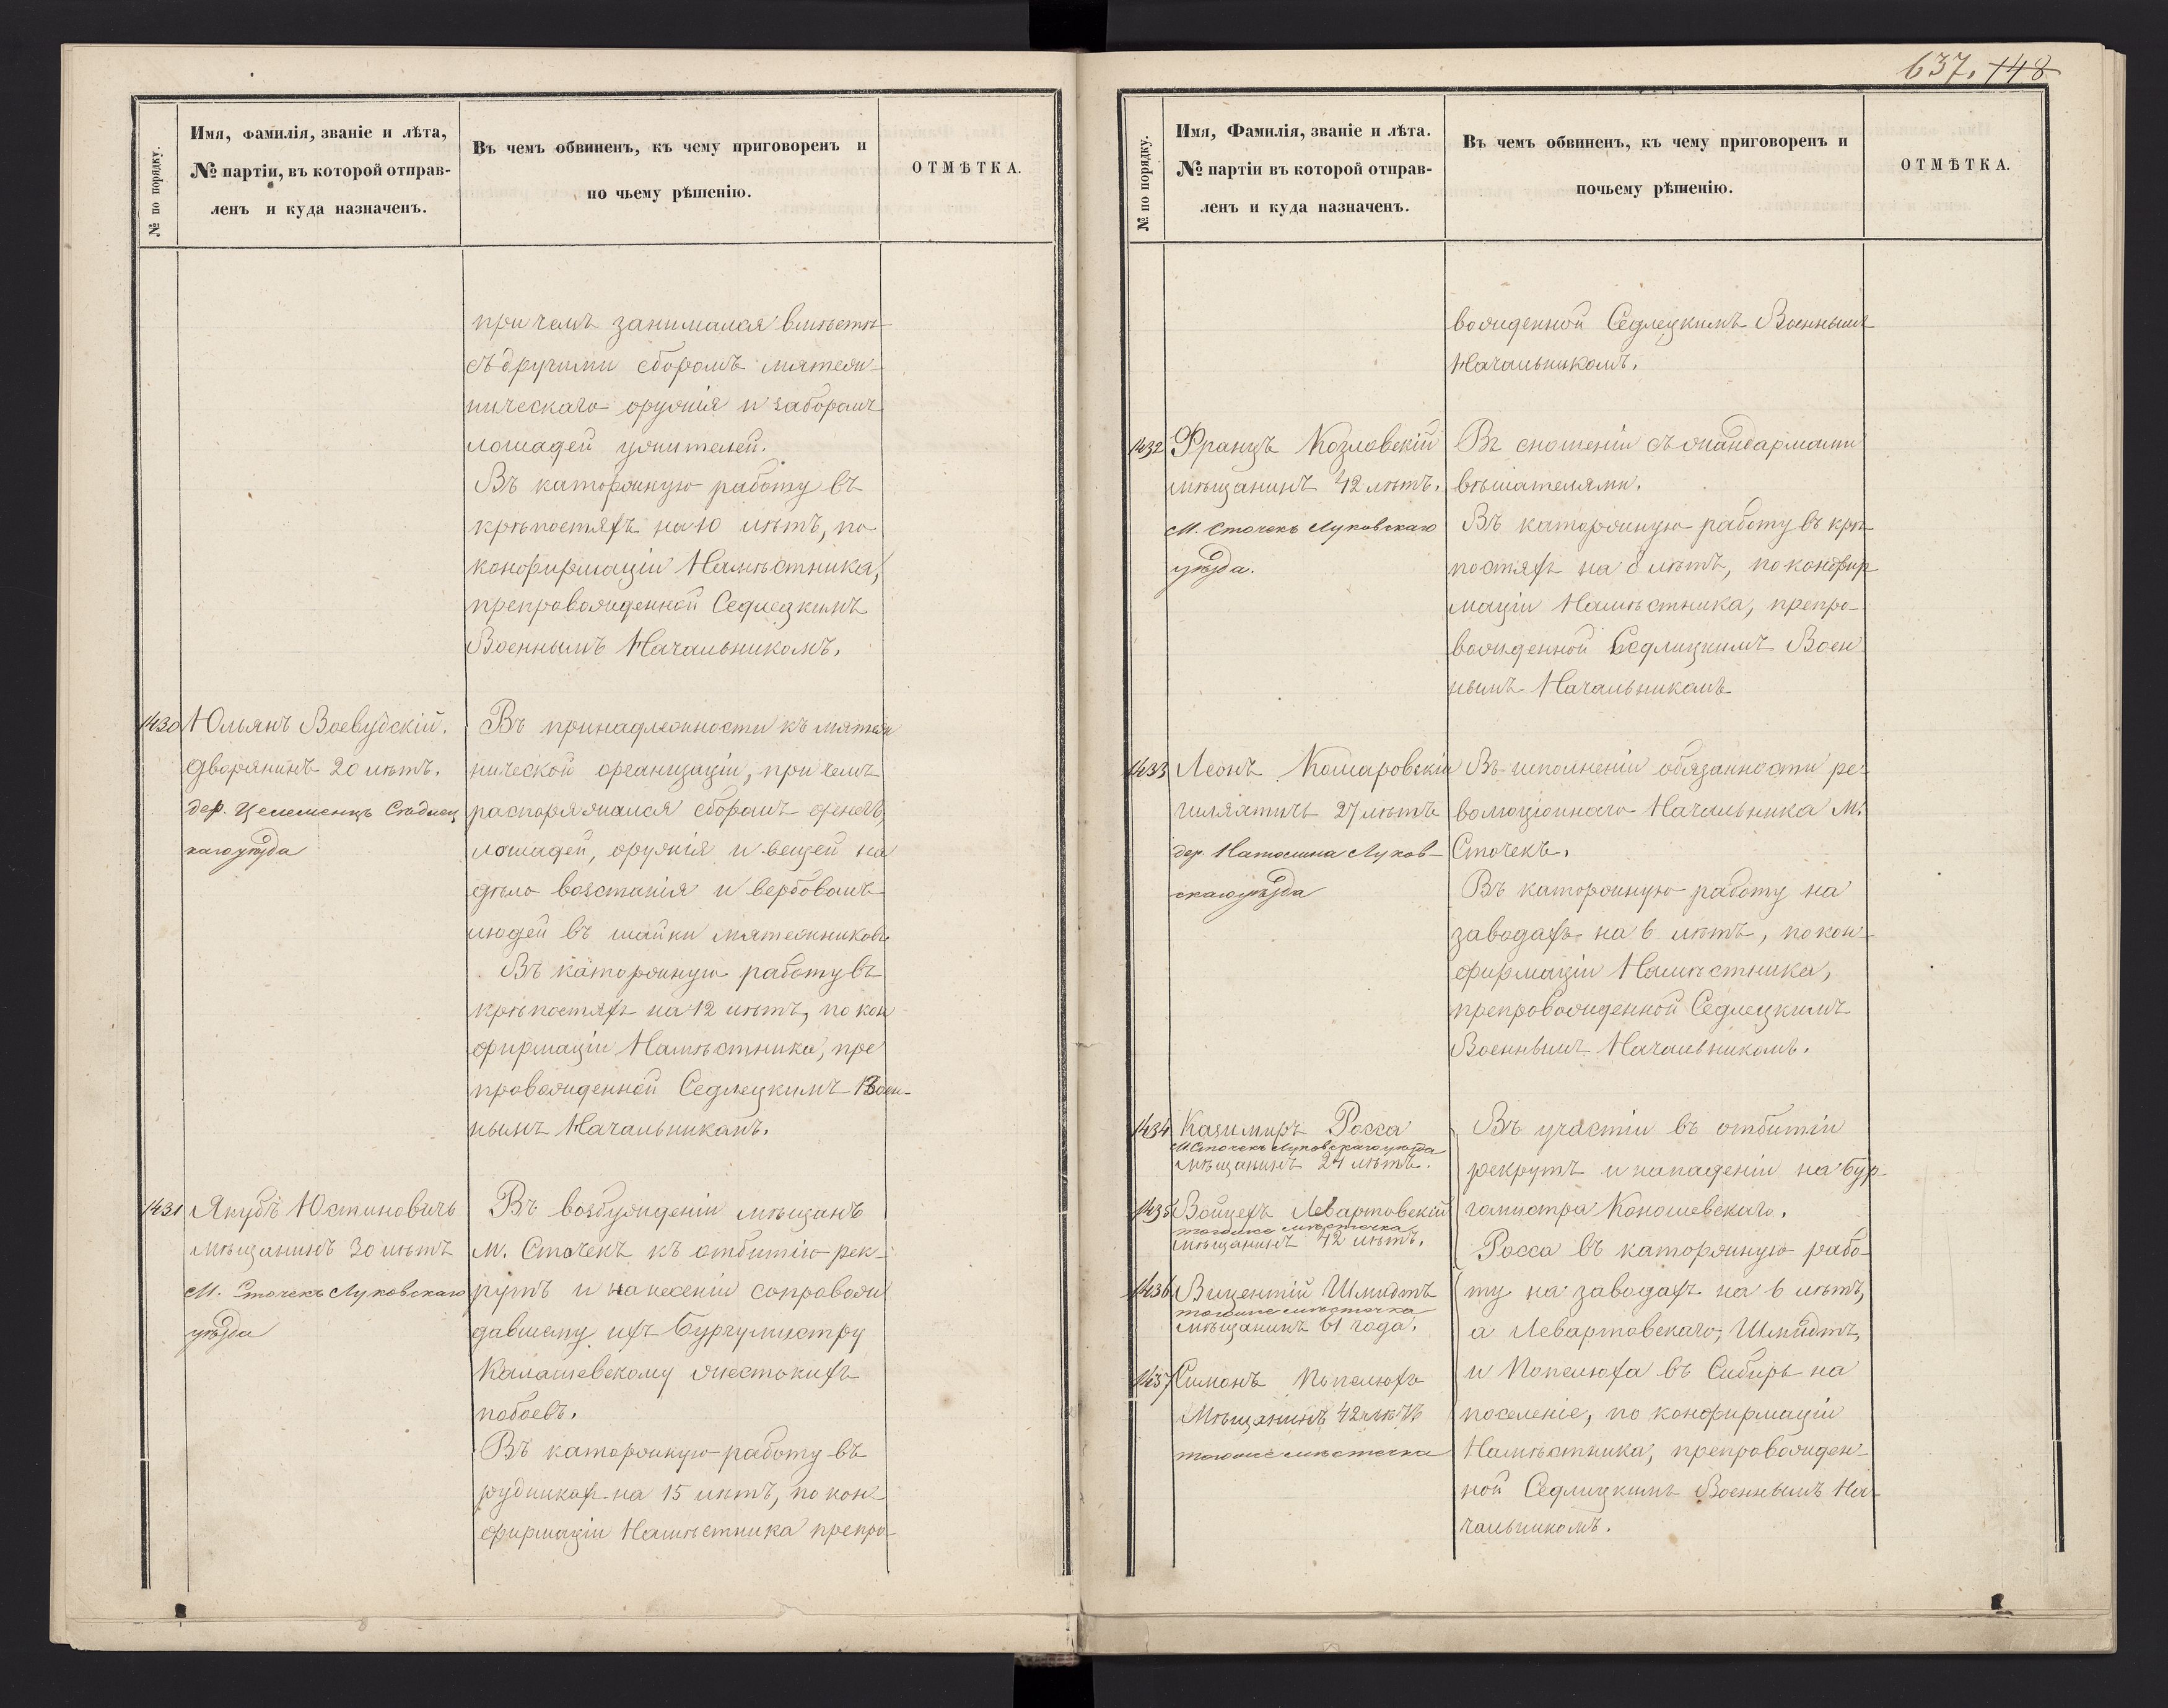 № по порядку.
Имя, фамилія, званіе и лѣта,
№ партіи, въ которой отправ-
ленъ и куда назначенъ.
Въ чемъ обвиненъ, къ чему приговоренъ и
по чьему рѣшенію.
ОТМѢТКА.
при чемъ занимался вмѣстѣ
съ другими сборомъ мятеж-
ническаго оружія и заборомъ
лошадей у жителей.
Въ каторжную работу въ
крѣпостяхъ на 10 лѣтъ, по
конфирмаціи Намѣстника,
препровожденной Седлецкимъ
Военнымъ Начальникомъ.
1430 Юльянъ Воевудскій.
дворянинъ 20 лѣтъ.
дер.
каго уѣзда
Въ принадлежности къ мятеж
нической организаціи, при чемъ
распоряжался сборомъ денегъ,
лошадей, оружія и вещей на
дѣло возстанія и вербовалъ
людей въ шайки мятежниковъ.
Въ каторжную работу въ
крѣпостяхъ на 12 лѣтъ, по кон
фирмаціи Намѣстника, пре
провожденной Седлецкимъ Воен-
нымъ Начальникомъ.
1431 Якубъ Юстиновичъ
мѣщанинъ 30 лѣтъ
М. Сточекъ Луковскаго
уѣзда
Въ возбужденіи мѣщанъ
м. Сточекъ къ отбитію рек-
рутъ и нанесеніи сопровож
давшему ихъ бургумистру
Калашевскому жестокихъ
побоевъ.
Въ каторжную работу въ
рудникахъ на 15 лѣтъ, по кон-
фирмаціи Намѣстника препро-
637. 148
№ по порядку.
Имя, Фамилія, званіе и лѣта.
№ партіи въ которой отправ-
ленъ и куда назначенъ.
Въ чемъ обвиненъ, къ чему приговоренъ и
почьему рѣшенію.
ОТМѢТКА.
вожденной Седлецкимъ Военнымъ
Начальникомъ.
1432 Францъ Козловскій
мѣщанинъ 42 лѣтъ.
М. Сточекъ Луковскаго
уѣзда.
Въ сношеніи съ жандармами
вѣшателями.
Въ каторжную работу въ крѣ-
постяхъ на 8 лѣтъ, по конфир
маціи Намѣстника, препро-
вожденной Седлицкимъ Воен
нымъ Начальникомъ
1433 Леонъ Комаровскій
шляхтичъ 27 лѣтъ
дер. Луков-
скаго уѣзда
Въ исполненіи обязанности ре-
волюціоннаго Начальника м.
Сточекъ.
Въ каторжную работу на
заводахъ на 6 лѣтъ, по кон-
фирмаціи Намѣстника,
препровожденной Седлецкимъ
Военнымъ Начальникомъ.
1434 Казимиръ Росса
М. Сточекъ Луковскаго уѣзда
мѣщанинъ 24 лѣтъ.
1435 Войцехъ Левартовскій
тогоже мѣстечка
мѣщанинъ 42 лѣтъ.
1436 Вицентій Шмидтъ
тогоже мѣстечка
мѣщанинъ 61 года.
1437 Симонъ Попелюхъ
Мѣщанинъ 42 лѣтъ
тогоже мѣстечка
Въ участіи въ отбитіи
рекрутъ и нападеніи на бур-
гомистра Коношевскаго.
Росса въ каторжную рабо-
ту на заводахъ на 6 лѣтъ,
а Левартовскаго, Шмидтъ,
и Попелюха въ Сибирь на
поселеніе, по конфирмаціи
Намѣстника, препровожден-
ной Седлицкимъ Военнымъ На-
чальникомъ.